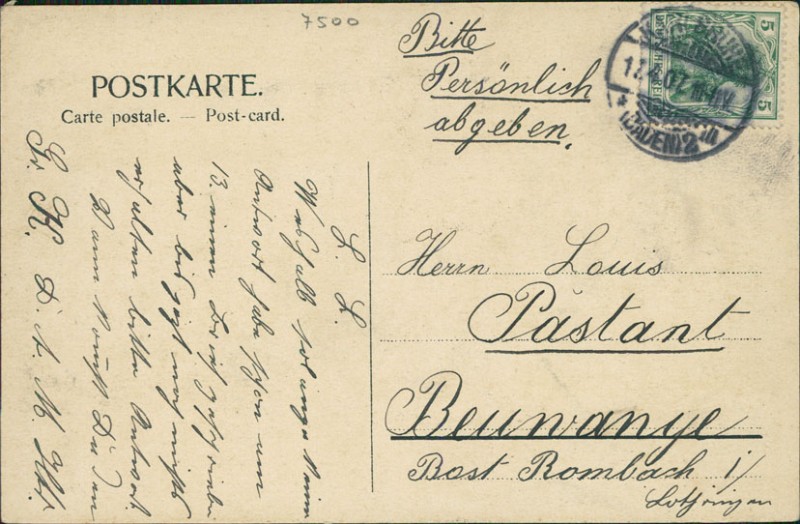 7500
Bitte
Persönlich
abgeben.
POSTKARTE.
Carte postale. — Post-card.
5
5
17.4.07.
(BADEN) 2
L. L.
Weshalb so lange keine
Antwort habe schon am
13. einen Brief geschrieben
aber bis jetzt noch nichts
erhalten bitte Antwort.
Wann kommst Du
Gr. K. D. l. M.
Herrn Louis
Pastant
Beuwanye
Post Rombach i/
Lothringen